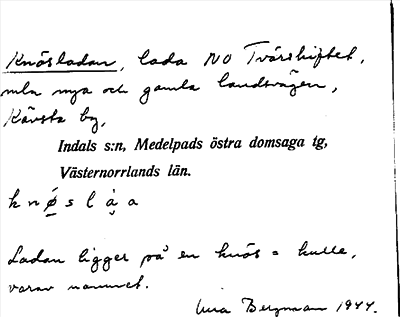 Knösladan, lada NO Tvärskiftet,
mln nya och gamla landsvägen,
Kävsta by,
Indals s:n, Medelpads östra domsaga tg,
Västernorrlands län.
k n ø̱ s l ạ̀ a
Ladan ligger på en knös = kulle,
varav namnet.
Bergman 1944.